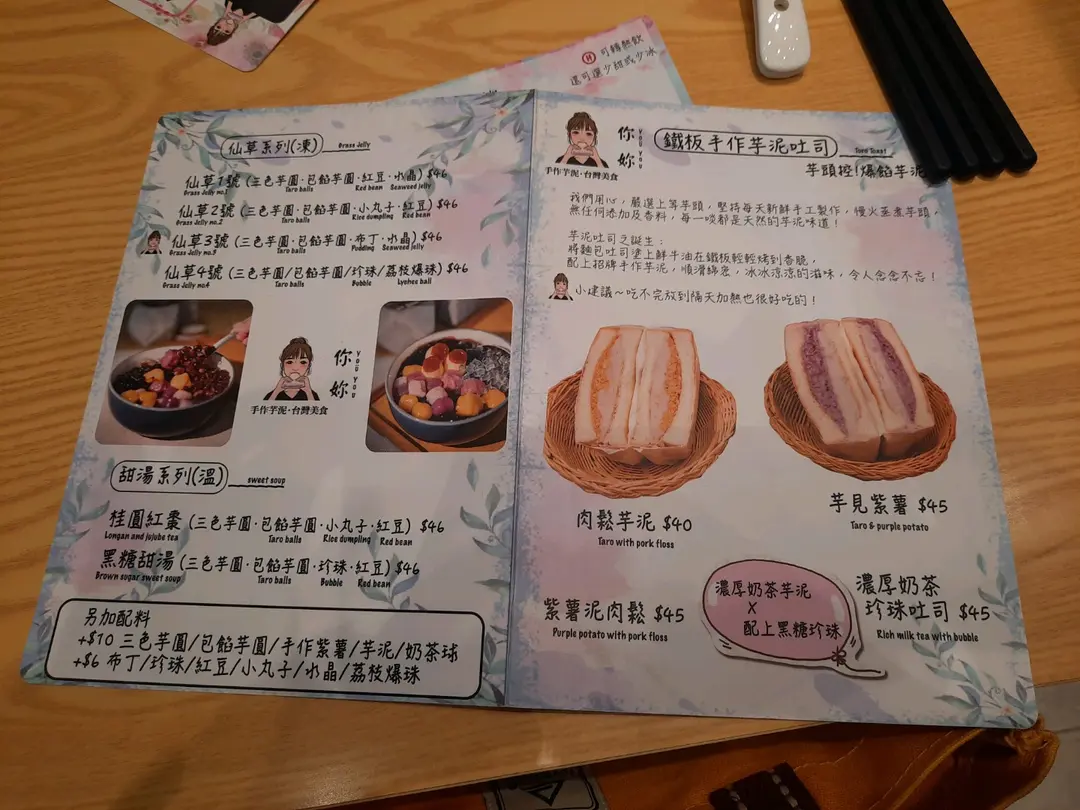 可轉熱飲
還可選少甜或少冰
仙草系列(凍)
Grass Jelly
仙草1號 (三色芋圓·包餡芋圓·紅豆·水晶) $46
Grass Jelly no.1 Taro balls Red bean Seaweed jelly
仙草2號 (三色芋圓·包餡芋圓·小丸子·紅豆) $46
Grass Jelly no.2 Taro balls Rice dumpling Red bean
仙草3號 (三色芋圓·包餡芋圓·布丁·水晶) $46
Grass Jelly no.3 Taro balls Pudding Seaweed jelly
仙草4號 (三色芋圓/包餡芋圓/珍珠/荔枝爆珠) $46
Grass Jelly no4 Taro balls Bubble Lychee ball
你妳
YOU YOU
手作芋泥·台灣美食
甜湯系列(溫)
sweet soup
桂圓紅棗 (三色芋圓·包餡芋圓·小丸子·紅豆) $46
Longan and jujube tea Taro balls Rice dumpling Red bean
黑糖甜湯 (三色芋圓·包餡芋圓·珍珠·紅豆) $46
Brown sugar sweet soup Taro balls Bubble Red bean
另加配料
+$10 三色芋圓/包餡芋圓/手作紫薯/芋泥/奶茶球
+$6 布丁/珍珠/紅豆/小丸子/水晶/荔枝爆珠
你妳
YOU YOU
手作芋泥·台灣美食
鐵板手作芋泥吐司
Taro Toast
芋頭控!爆餡芋泥
我們用心，嚴選上等芋頭，堅持每天新鮮手工製作，慢火蒸煮芋頭，
無任何添加及香料，每一啖都是天然的芋泥味道！
芋泥吐司之誕生：
將麵包吐司塗上鮮牛油在鐵板輕輕烤到香脆，
配上招牌手作芋泥，順滑綿密，冰冰涼涼的滋味，令人念念不忘！
小建議～吃不完放到隔天加熱也很好吃的！
肉鬆芋泥 $40
Taro with pork floss
芋見紫薯 $45
Taro & purple potato
紫薯泥肉鬆 $45
Purple potato with pork floss
濃厚奶茶芋泥
X
配上黑糖珍珠
濃厚奶茶
珍珠吐司 $45
Rich milk tea with bubble